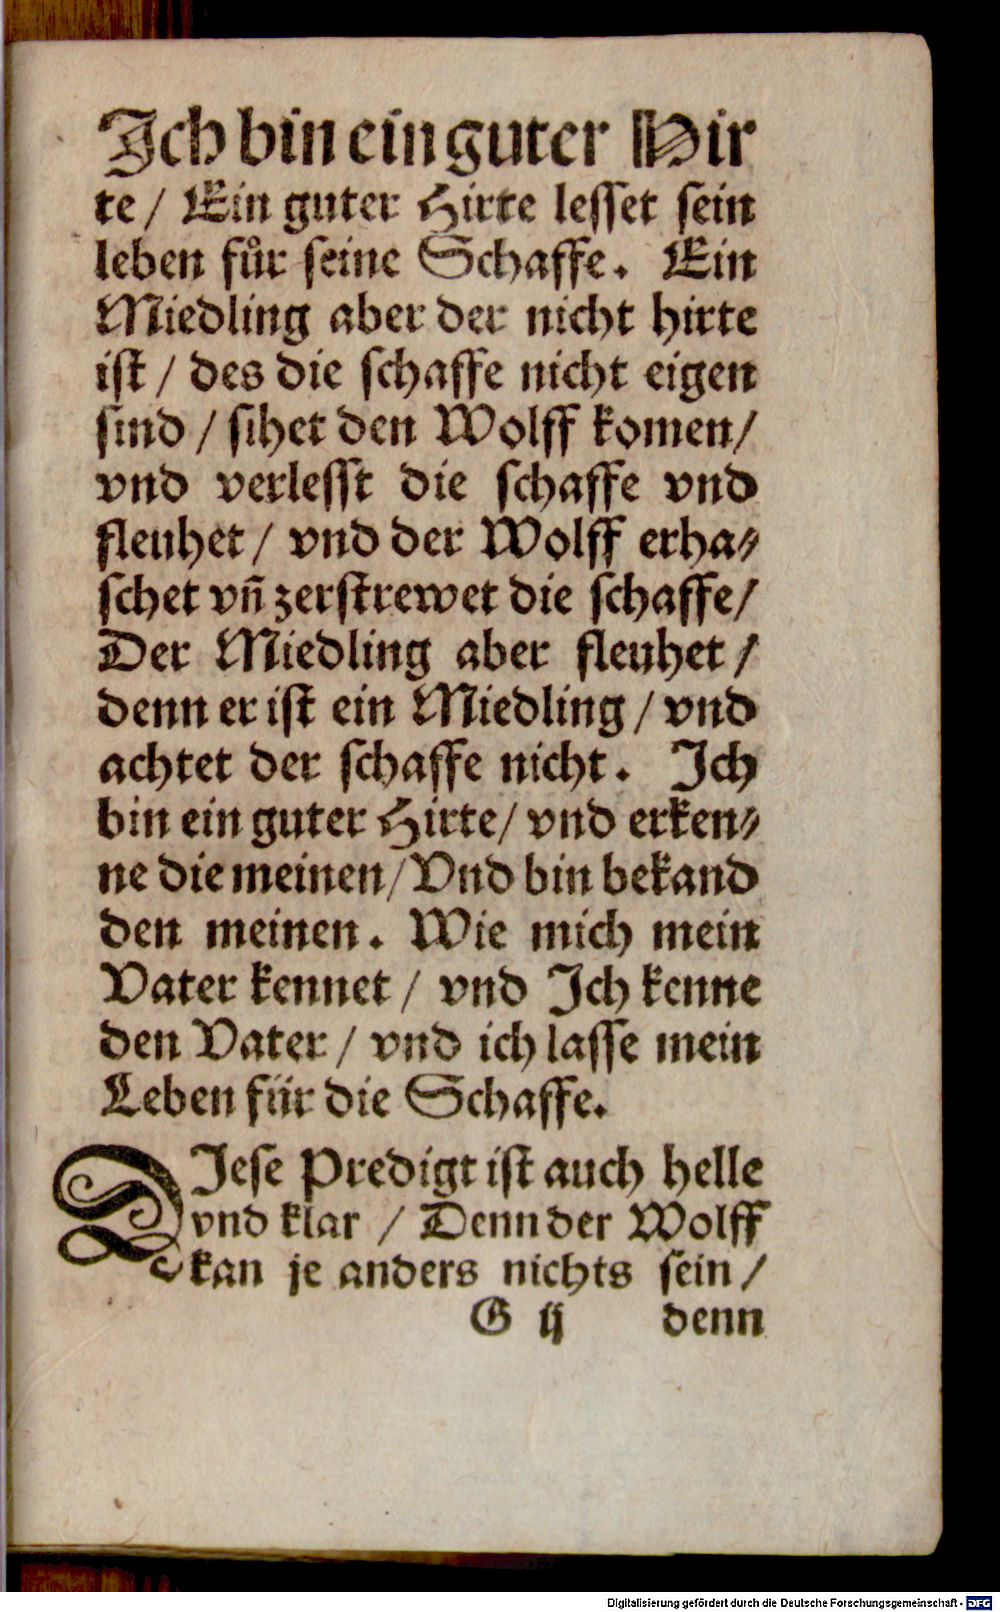 Ich bin ein guter Hir
te / Ein guter Hirte lesset sein
leben fůr seine Schaffe. Ein
Miedling aber der nicht hirte
ist / des die schaffe nicht eigen
sind / sihet den Wolff komen /
vnd verlesst die schaffe vnd
fleuhet / vnd der Wolff erha⸗
schet vñ zerstrewet die schaffe /
Der Miedling aber fleuhet /
denn er ist ein Miedling / vnd
achtet der schaffe nicht. Ich
bin ein guter Hirte / vnd erken⸗
ne die meinen / Vnd bin bekand
den meinen. Wie mich mein
Vater kennet / vnd Ich kenne
den Vater / vnd ich lasse mein
Leben für die Schaffe.
DIese Predigt ist auch helle
vnd klar / Denn der Wolff
kan je anders nichts sein /
G ij denn
Digitalisierung gefördert durch die Deutsche Forschungsgemeinschaft - DFG